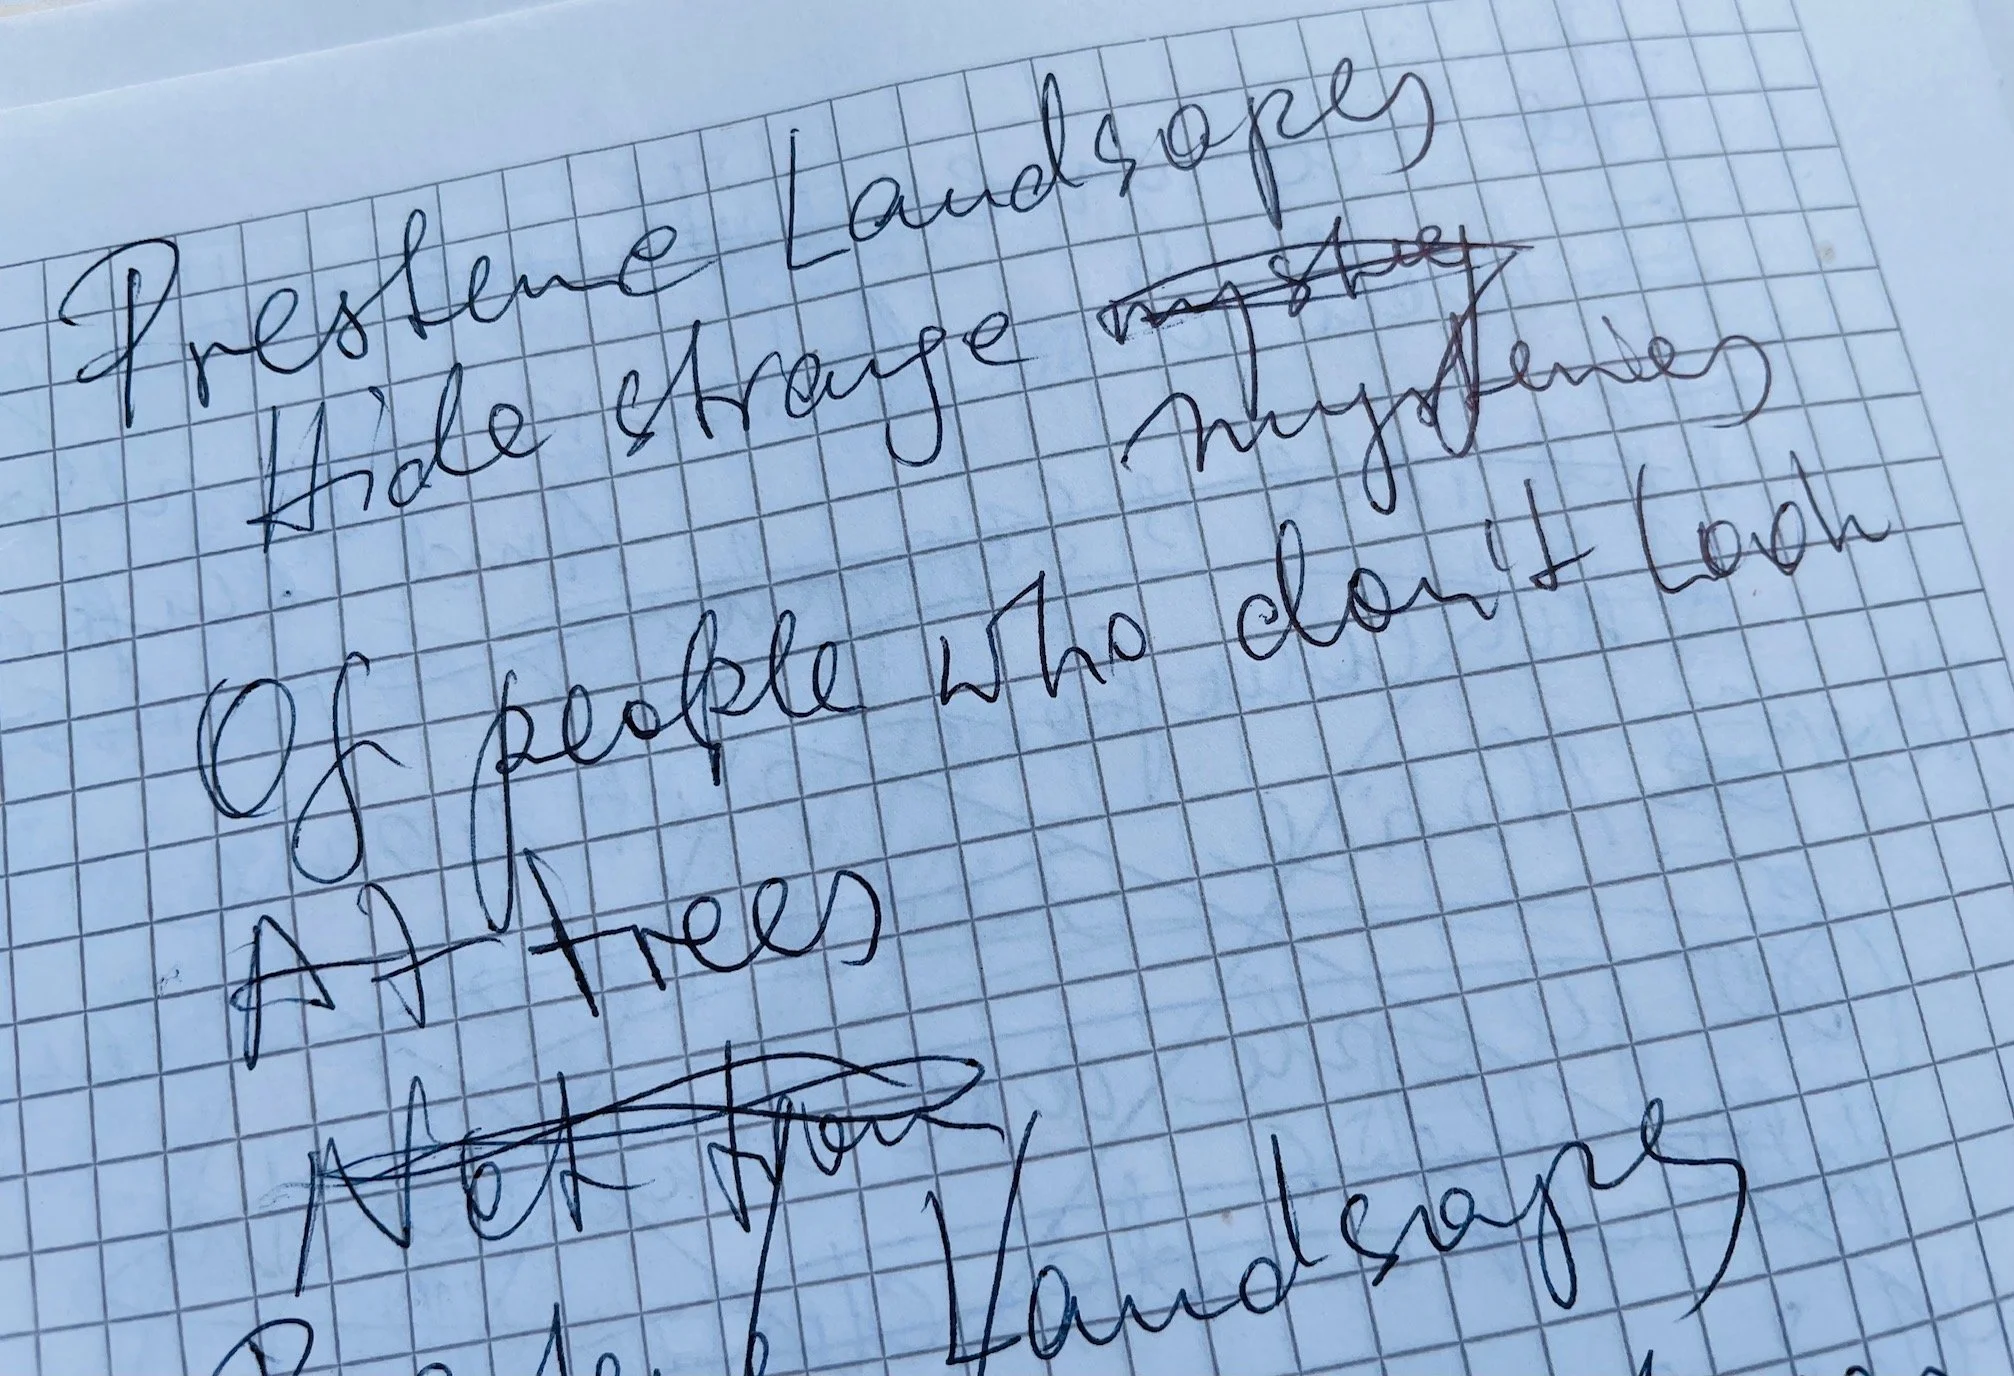 Prestene Landsopes
Hide strange mysteries
Of people who don't Look
At trees
Not
Landsopes